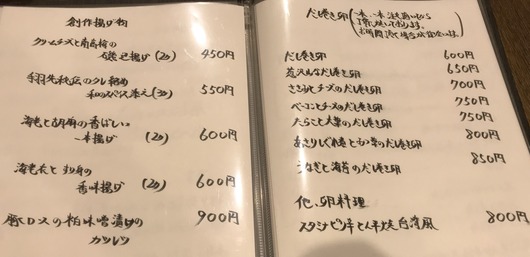 創作揚げ物
クリームチーズと南高梅の
磯辺揚げ(2コ) 450円
手羽先秘伝のタレ絡め
和のスパイス添え(3コ) 550円
海老と胡麻の香ばしい
一本揚げ (2コ) 600円
海老と
香味揚げ (2コ) 600円
豚ロースの粕味噌漬けの
カツレツ 900円
だし巻き卵
一本、一本注文いただいてから
焼いております。
お時間頂く場合があります。
だし巻き卵 600円
だし巻き卵 650円
チーズのだし巻き卵 700円
ベーコンとチーズのだし巻き卵 750円
たらこと大葉のだし巻き卵 750円
あさりしぐれ煮と のだし巻き卵 800円
うなぎと海苔のだし巻き卵 850円
他、卵料理
スタミナピリ辛とん平焼台湾風 800円